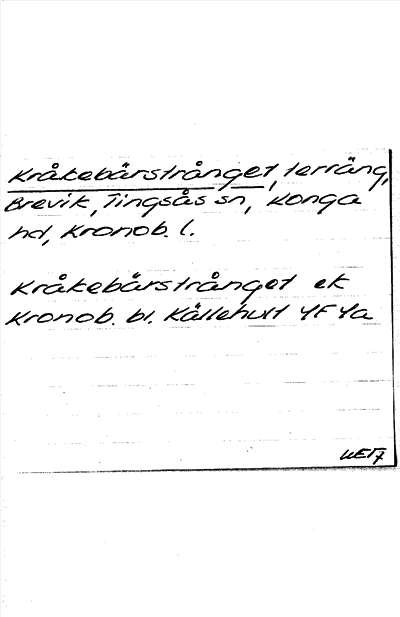 Kråkebärstrånget, terräng,
Brevik, Tingsås sn, Konga
hd, Kronob. l.
Kråkebärstrånget ek
Kronob. bl. Källehult 4F 4a